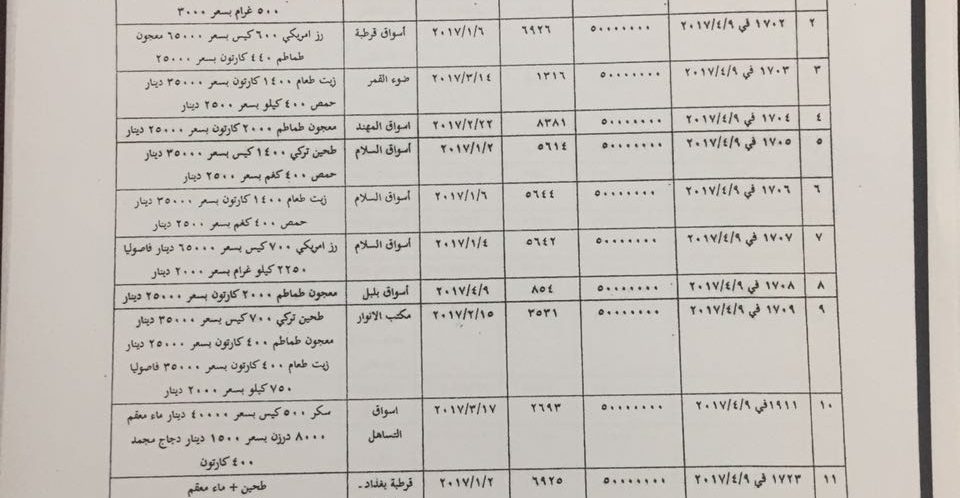 ٥٠٠ غرام بسعر ٣٠٠٠
٢ ١٧٠٢ في ٢٠١٧/٤/٩ ٥٠٠٠٠٠٠٠ ٦٩٢٦ ٢٠١٧/١/٦ أسواق قرطبة رز امريكي ٦٠٠ كيس بسعر ٦٥٠٠٠ معجون
طماطم ٤٤٠ كارتون بسعر ٢٥٠٠٠
٣ ١٧٠٣ في ٢٠١٧/٤/٩ ٥٠٠٠٠٠٠٠ ١٣١٦ ٢٠١٧/٣/١٤ ضوء القمر زيت طعام ١٤٠٠ كارتون بسعر ٣٥٠٠٠ دينار
حمص ٤٠٠ كيلو بسعر ٢٥٠٠ دينار
٤ ١٧٠٤ في ٢٠١٧/٤/٩ ٥٠٠٠٠٠٠٠ ٨٣٨١ ٢٠١٧/٢/٢٢ اسواق المهند معجون طماطم ٢٠٠٠ كارتون بسعر ٢٥٠٠٠ دينار
٥ ١٧٠٥ في ٢٠١٧/٤/٩ ٥٠٠٠٠٠٠٠ ٥٦١٤ ٢٠١٧/١/٢ أسواق السلام طحين تركي ١٤٠٠ كيس بسعر ٣٥٠٠٠ دينار
حمص ٤٠٠ كغم بسعر ٢٥٠٠ دينار
٦ ١٧٠٦ في ٢٠١٧/٤/٩ ٥٠٠٠٠٠٠٠ ٥٦٤٤ ٢٠١٧/١/٦ أسواق السلام زيت طعام ١٤٠٠ كارتون بسعر ٣٥٠٠٠ دينار
حمص ٤٠٠ كغم بسعر ٢٥٠٠ دينار
٧ ١٧٠٧ في ٢٠١٧/٤/٩ ٥٠٠٠٠٠٠٠ ٥٦٤٢ ٢٠١٧/١/٤ أسواق السلام رز امريكي ٧٠٠ كيس بسعر ٦٥٠٠٠ دينار فاصوليا
٢٢٥٠ كيلو غرام بسعر ٢٠٠٠ دينار
٨ ١٧٠٨ في ٢٠١٧/٤/٩ ٥٠٠٠٠٠٠٠ ٨٥٤ ٢٠١٧/٤/٩ أسواق بلبل معجون طماطم ٢٠٠٠ كارتون بسعر ٢٥٠٠٠ دينار
٩ ١٧٠٩ في ٢٠١٧/٤/٩ ٥٠٠٠٠٠٠٠ ٣٥٣١ ٢٠١٧/٢/١٥ مكتب الانوار طحين تركي ٧٠٠ كيس بسعر ٣٥٠٠٠ دينار
معجون طماطم ٤٠٠ كارتون بسعر ٢٥٠٠٠ دينار
زيت طعام ٤٠٠ كارتون بسعر ٣٥٠٠٠ فاصوليا
٧٥٠ كيلو بسعر ٢٠٠٠ دينار
١٠ ١٩١١في ٢٠١٧/٤/٩ ٥٠٠٠٠٠٠٠ ٢٦٩٣ ٢٠١٧/٣/١٧ اسواق سكر ٥٠٠ كيس بسعر ٤٠٠٠٠ دينار ماء معقم
التساهل ٨٠٠٠ درزن بسعر ١٥٠٠ دينار دجاج مجمد
٤٠٠ كارتون
١١ ١٧٢٣ في ٢٠١٧/٤/٩ ٥٠٠٠٠٠٠٠ ٦٩٢٥ ٢٠١٧/١/٢ قرطبة بغداد- طحين + ماء معقم